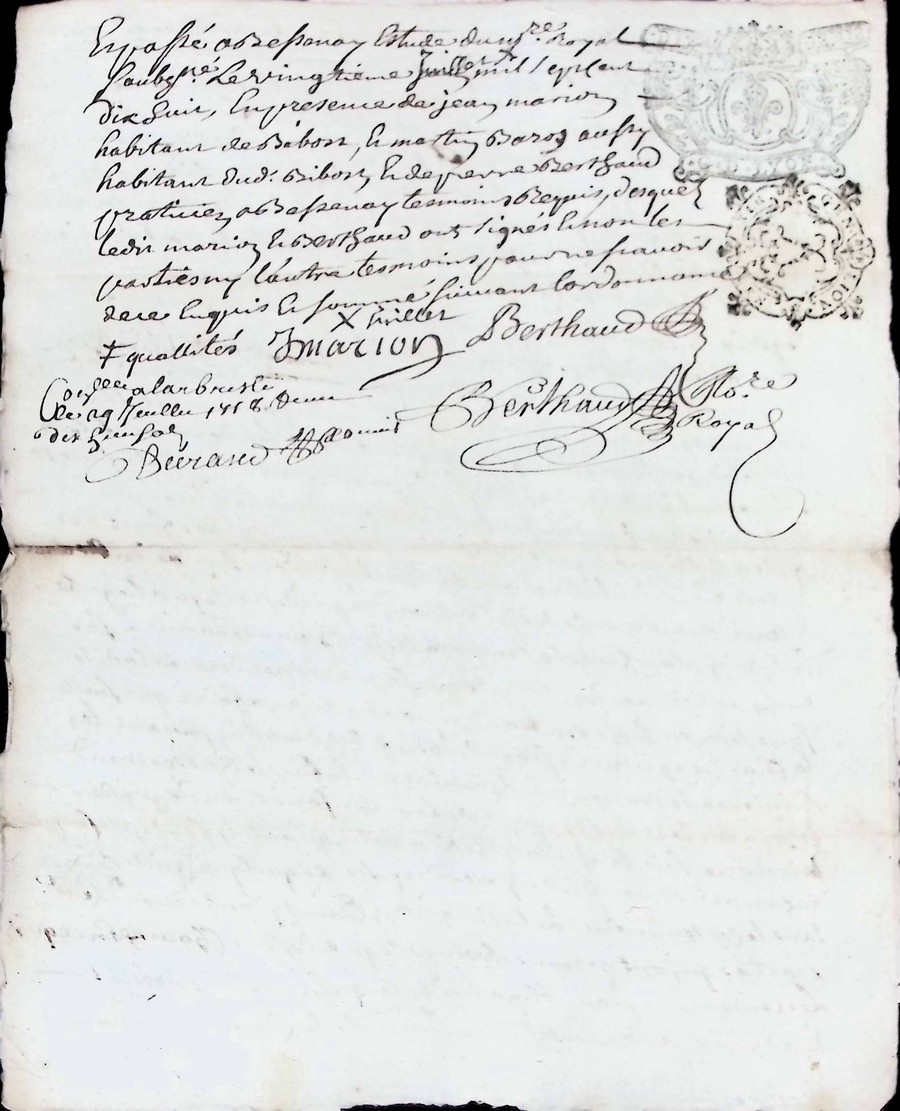 Et passé a Bessenay Estude du no.re Royal
soubs.né Le vingtième Juillet mil sept cent
dix huit, En presence de jean marion
habitant de Bibost, Et martin Bazog aussy
habitant dud. Bibost, Et de pierre Berthaud
praticien a Bessenay tesmoins Requis, desquelz
ledit marion Et Berthaud ont signés Et non les
parties ny l'autre tesmoins pour ne sçavoir
de ce Enquis Et sommé suivant l'ordonnance
+ quallités X juillet
JMARION Berthaud
Con.llé a larbresle
le 29 Juillet 1718
dix huit sol
Berthaud No.re
Royal
Beraud
GEN
LION